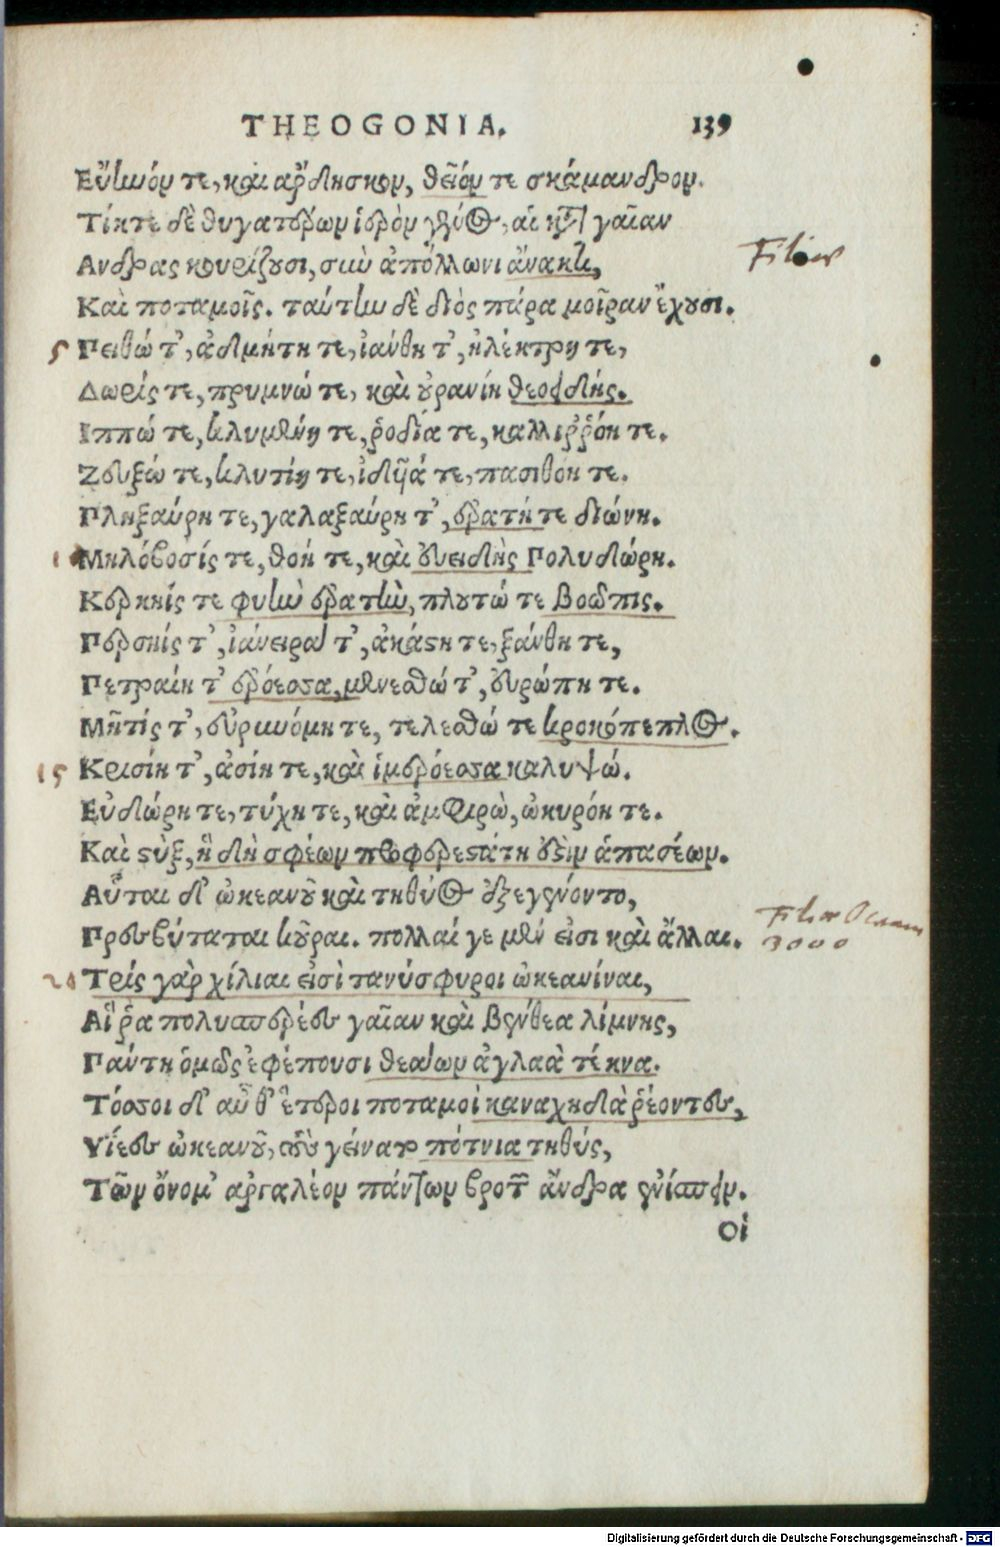 THEOGONIA. 139
Εὔηνόν τε, καὶ ἄρδησκον, θεῖόν τε σκάμανδρον.
Τίκτε δὲ θυγατέρων ἱερὸν γένος, αἱ κατὰ γαῖαν
Ανδρας κουρίζουσι, σὺν ἀπόλλωνι ἄνακτι,
Καὶ ποταμοῖς. ταύτην δὲ διὸς πάρα μοῖραν ἔχουσι.
5 Πειθώ τ', ἀδμήτη τε, ἰάνθη τ', ἠλέκτρη τε,
Δωρίς τε, πρυμνώ τε, καὶ οὐρανίη θεοειδής.
Ιππώ τε, κλυμένη τε, ῥοδία τε, καλλιῤῥόη τε.
Ζευξώ τε, κλυτίη τε, ἰδυῖά τε, πασιθόη τε.
Πληξαύρη τε, γαλαξαύρη τ', ἐρατή τε διώνη.
Μηλόβοσίς τε, θοή τε, καὶ εὐειδὴς Πολυδώρη.
Κερκηίς τε φυὴν ἐρατὴν, πλουτώ τε βοῶπις.
Περσηίς τ', ἰάνειρα τ', ἀκάστη τε, ξάνθη τε,
Πετραίη τ' ἐρόεσσα, μενεσθώ τ', εὐρώπη τε.
Μῆτίς τ', εὐρυνόμη τε, τελεσθώ τε κροκόπεπλος.
15 Κρισίη τ', ἀσίη τε, καὶ ἱμερόεσσα καλυψώ.
Εὐδώρη τε, τύχη τε, καὶ ἀμφιρὼ, ὠκυρόη τε.
Καὶ στὺξ, ἣ δὴ σφέων προφερεστάτη ἐστὶν ἁπασέων.
Αὗται δ' ὠκεανοῦ καὶ τηθύος ἐξεγένοντο,
Πρεσβύταται κοῦραι. πολλαί γε μέν εἰσι καὶ ἄλλαι.
20 Τρὶς γὰρ χίλιαι εἰσὶ τανύσφυροι ὠκεανίναι,
Αἵ ῥα πολυσπερέες γαῖαν καὶ βένθεα λίμνης,
Πάντη ὁμῶς ἐφέπουσι θεάων ἀγλαὰ τέκνα.
Τόσσοι δ' αὖθ' ἕτεροι ποταμοὶ καναχηδὰ ῥέοντες,
Υἱέες ὠκεανοῦ, τοὺς γείνατο πότνια τηθύς,
Τῶν ὄνομ' ἀργαλέον πάντων βροτὸν ἄνδρα ἐνίσπειν.
οἱ
Filiae
Filiae Oceani
3000
Digitalisierung gefördert durch die Deutsche Forschungsgemeinschaft - DFG